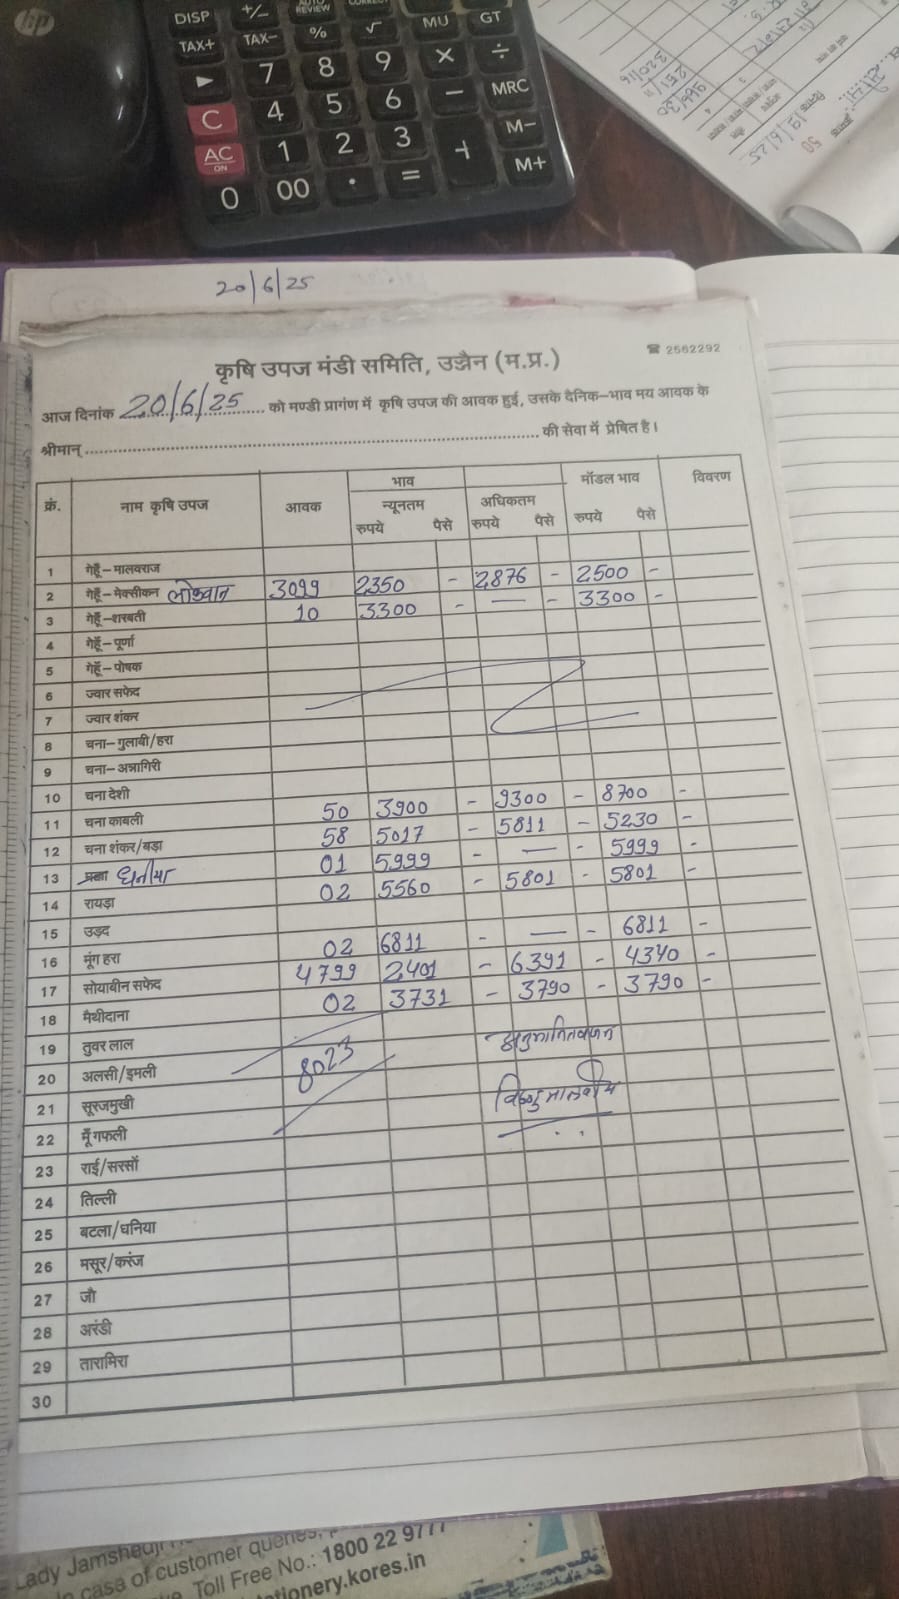 hp
DISP +/- AUTO REVIEW CORRECT MU GT
TAX+ TAX− % √
► 7 8 9 × ÷
C 4 5 6 − MRC
AC ON 1 2 3 + M−
0 00 · = M+
20/6/25
☎ 2562292
कृषि उपज मंडी समिति, उज्जैन (म.प्र.)
आज दिनांक 20/6/25 को मण्डी प्रागंण में कृषि उपज की आवक हुई, उसके दैनिक–भाव मय आवक के
श्रीमान् की सेवा में प्रेषित है।
क्रं. नाम कृषि उपज आवक भाव मॉडल भाव विवरण
न्यूनतम अधिकतम
रुपये पैसे रुपये पैसे रुपये पैसे
1 गेहूँ–मालवराज
2 गेहूँ–मेक्सीकन लोकवान 3099 2350 - 2876 - 2500 -
3 गेहूँ–शरबती 10 3300 - — - 3300 -
4 गेहूँ–पूर्णा
5 गेहूँ–पोषक
6 ज्वार सफेद
7 ज्वार शंकर
8 चना–गुलाबी/हरा
9 चना–अन्नागिरी
10 चना देशी
11 चना काबली 50 3900 - 9300 - 8700 -
12 चना शंकर/बड़ा 58 5017 - 5811 - 5230 -
13 धनीया 01 5999 - — - 5999 -
14 रायड़ा 02 5560 - 5801 - 5801 -
15 उड़द
16 मूंग हरा 02 6811 - — - 6811 -
17 सोयाबीन सफेद 4799 2401 - 6391 - 4340 -
18 मैथीदाना 02 3731 - 3790 - 3790 -
19 तुवर लाल
20 अलसी/इमली 8023 अनुमानित वजन
21 सूरजमुखी
22 मूँगफली
23 राई/सरसों
24 तिल्ली
25 बटला/धनिया
26 मसूर/करंज
27 जौ
28 अरंडी
29 तारामिरा
30
Lady Jamshedji
case of customer queries,
Toll Free No.: 1800 22 9777
tionery.kores.in